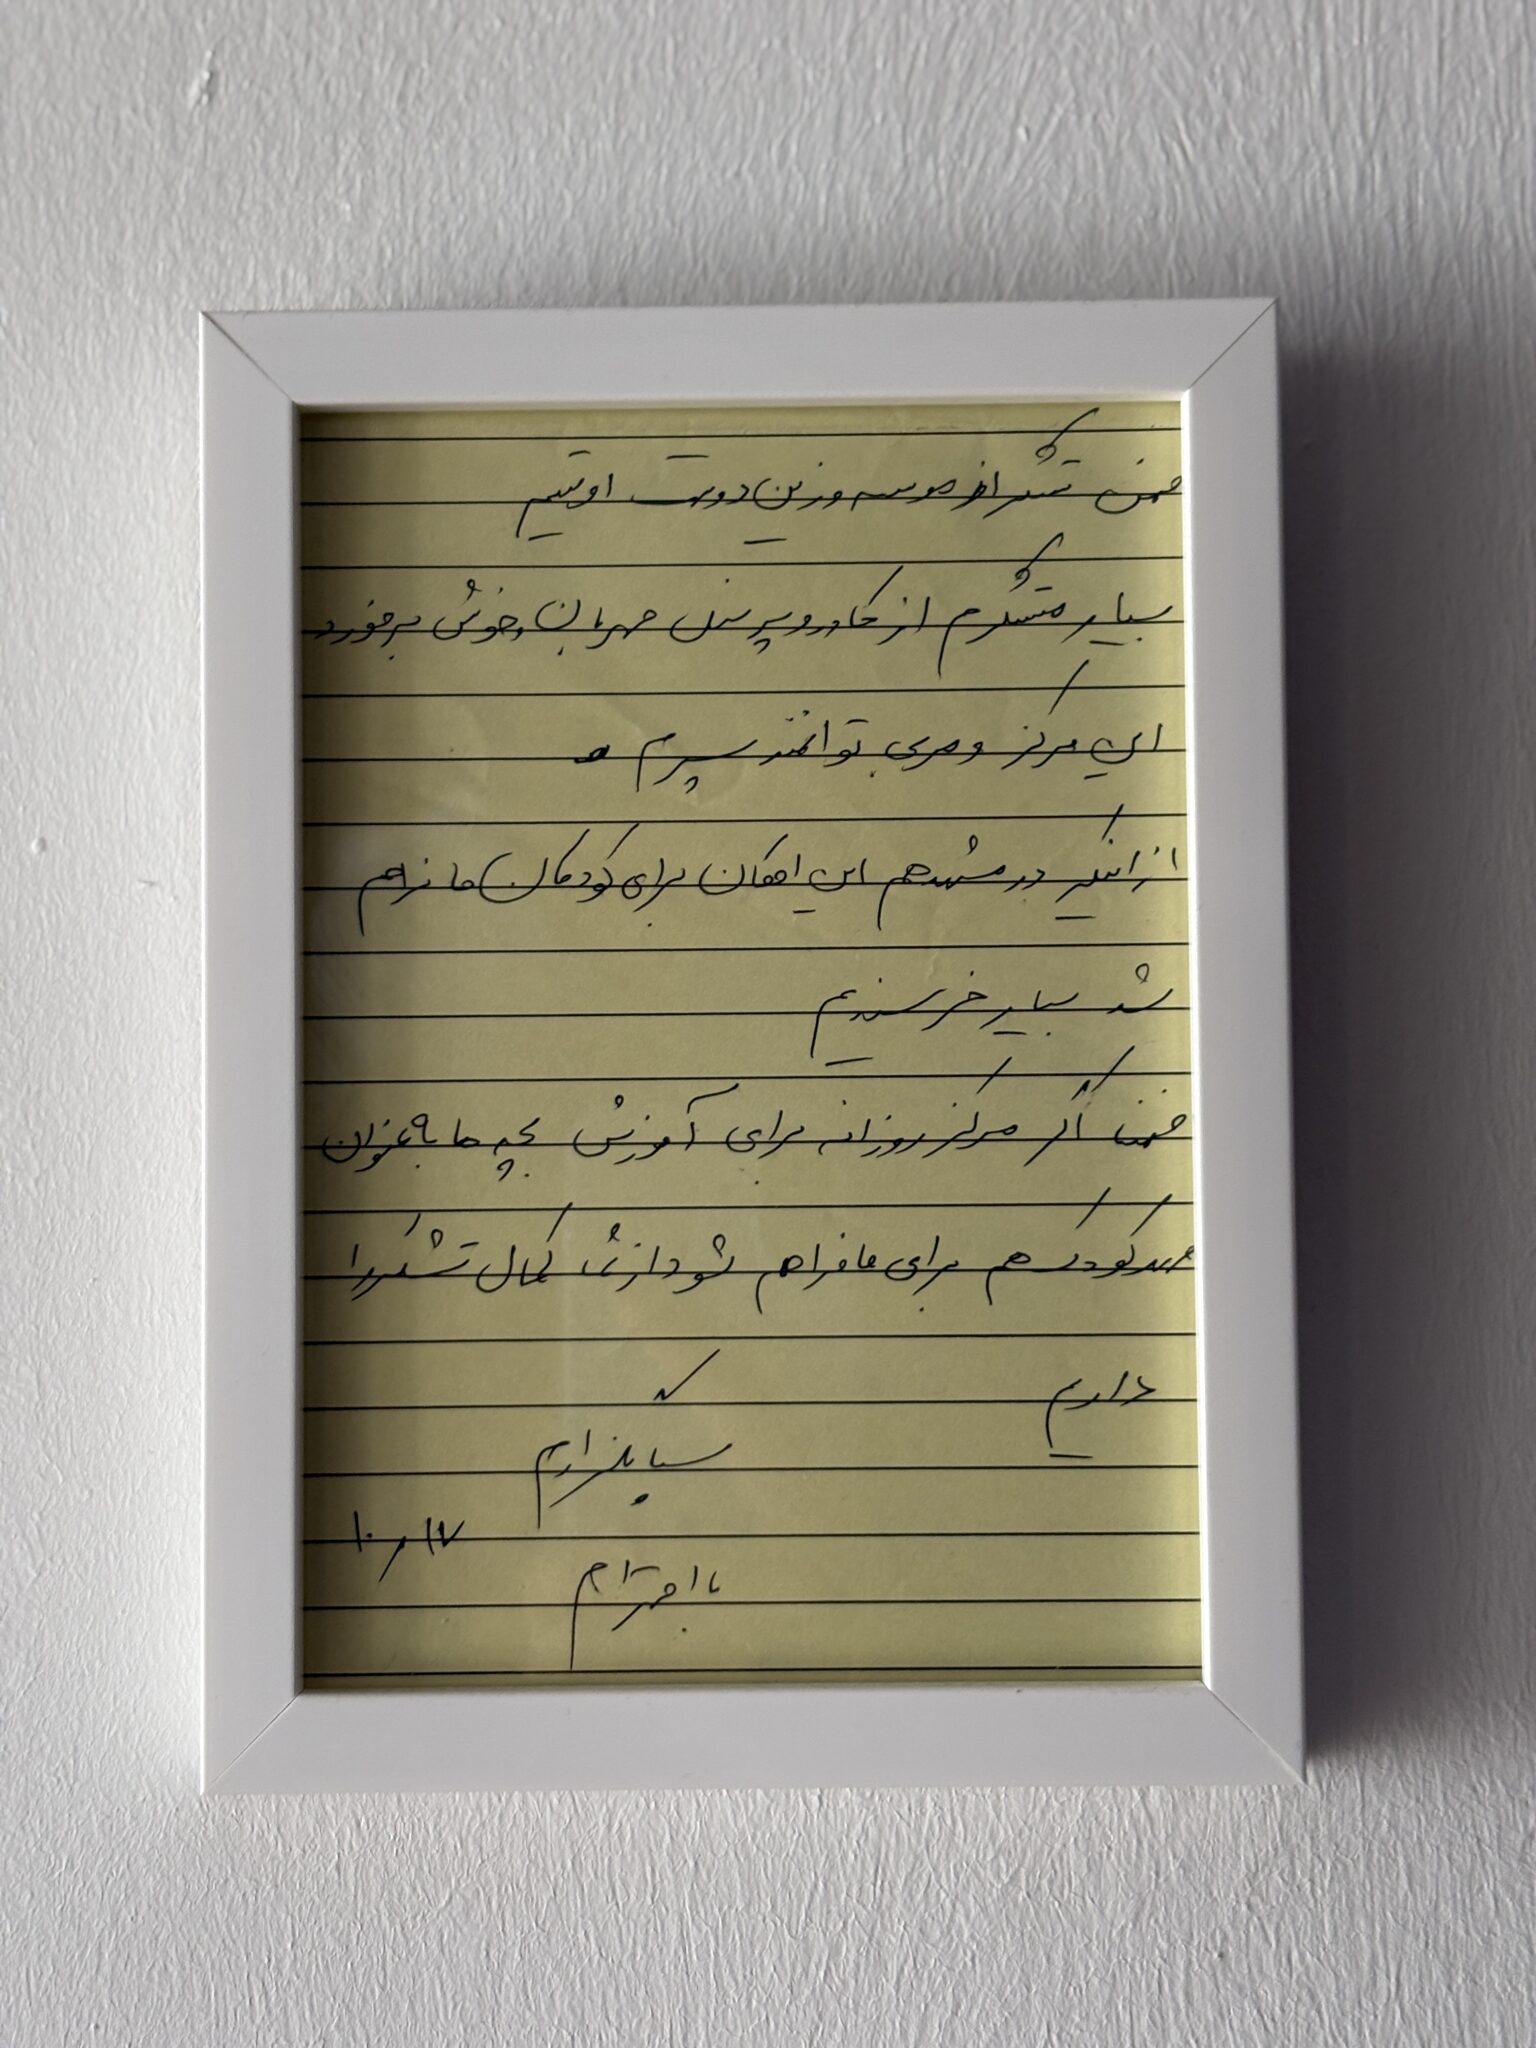 ضمن تشکر از موسسه وزین دوست اوتیسم
بسیار متشکرم از کادر و پرسنل مهربان و خوش برخورد
این مرکز و مربی توانمند پسرم
از اینکه در مشهد هم این امکان برای کودکان ما فراهم
شد بسیار خرسندیم
ضمنا اگر مرکز روزانه برای آموزش بچه ها به عنوان
مهد کودک هم برای ما فراهم شود از شما کمال تشکر را
داریم
سپاسگزارم
۱۷ ر ۱۰
با احترام